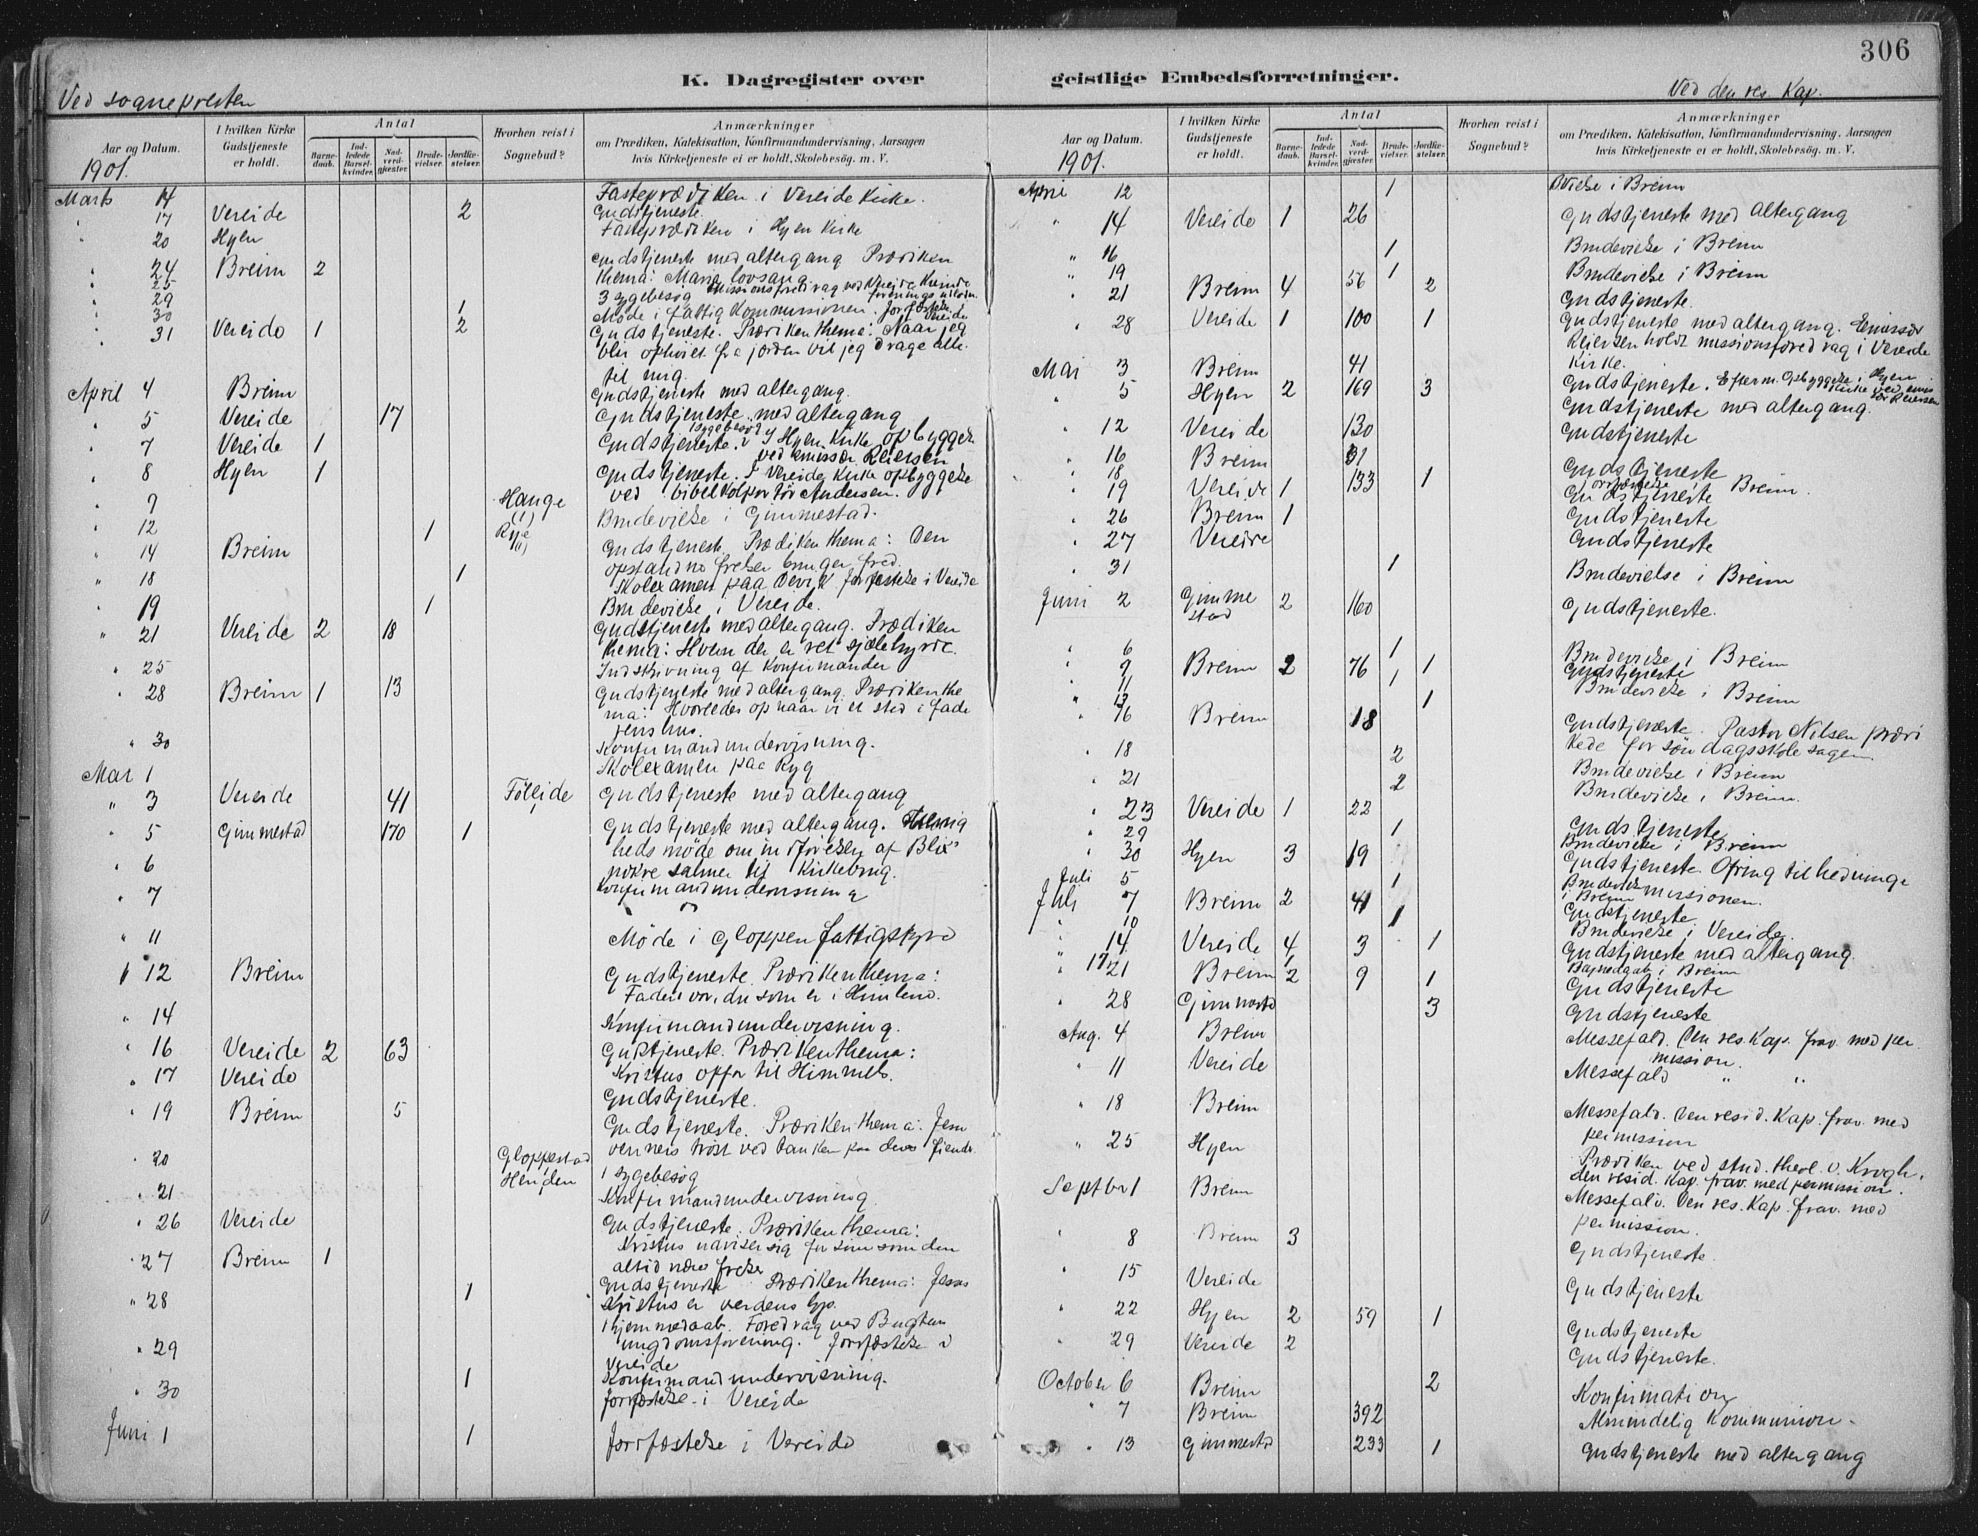 306
K. Dagregister over geistlige Embedsforretninger.
Ved sognepresten
Ved den res. Kap.
Aar og Datum.
1901.
I hvilken Kirke Gudstjeneste er holdt.
Antal
Barnedaab.
Indledede Barselkvinder.
Nadverdgjester.
Brudevielser.
Jordfæstelser.
Hvorhen reist i Sognebud?
Anmærkninger
om Prædiken, Katekisation, Konfirmandundervisning, Aarsagen
hvis Kirketjeneste ei er holdt, Skolebesøg. m. V.
Marts 14 Fasteprædiken i Vereide Kirke.
" 17 Vereide 2 Gudstjeneste.
" 20 Hyen Fasteprædiken i Hyen Kirke
" 24 Breim 2 Gudstjeneste med altergang Prædiken
" 25 thema: Maria lovsang
" 29 3 sygebesøg Missionsforedrag ved Vereide Kvinde
" 30 1 Møde i fattigkommissionen. Jordfæstelse Vereide
" 31 Vereide 1 2 Gudstjeneste. Prædiken thema: Naar jeg
blir ophøiet fra jorden vil jeg drage alle
til mig.
April 4 Breim Gudstjeneste med altergang.
" 5 Vereide 17 Gudstjeneste med altergang
" 7 Vereide 1 Gudstjeneste. I Hyen Kirke opbyggelse
ved emissær Reiersen
" 8 Hyen 1 Gudstjeneste. I Vereide Kirke opbyggelse
" 9 Hauge (1) ved bibelkolportør Andersen.
" 12 1 Rye (1) Brudevielse i Gimmestad.
" 14 Breim Gudstjeneste Prædiken thema: Den
opstandne frelser bringer fred.
" 18 1 Skolexamen paa Devik Jordfæstelse i Vereide
" 19 1 Brudevielse i Vereide.
" 21 Vereide 2 18 Gudstjeneste med altergang. Prædiken
thema: Hvem der er ret sjælehyrde.
" 25 Indskrivning af Konfirmander
" 28 Breim 1 13 Gudstjeneste med altergang. Prædiken the
ma: Hvorledes opnaar vi et sted i fade
renshus.
" 30 Konfirmandundervisning.
Mai 1 Skolexamen paa Ryg
" 3 Vereide 41 Gudstjeneste med altergang
" 5 Gimmestad 170 1 Gudstjeneste med altergang.
heds møde om indførelse af Blix'
" 6 nokre salmer til Kirkebrug.
" 7 Konfirmandundervisning
" 11 Møde i Gloppen fattigstyre
" 12 Breim Gudstjeneste Prædiken thema:
Fader vor, du som er i Himlene.
" 14 Konfirmandundervisning.
" 16 Vereide 2 63 Gudstjeneste. Prædiken thema:
Kristus opfor til Himmels.
" 17 Vereide Gudstjeneste.
" 19 Breim 5 Gudstjeneste. Prædiken thema: Jesu
venners trøst ved tanken paa deres fiender
" 20 Gloppestad 1 sygebesøg
Henden
" 21 Konfirmandundervisning
" 26 Vereide Gudstjeneste. Prædiken thema:
Kristus udviser sig for sine som den
altid nære frelser
" 27 Breim 1 Gudstjeneste Prædiken thema: Jesus
Kristus er verdens lys.
" 28 1 1 hjemmedaab. Foredrag ved
ungdomsforening. Jordfæstelse i
Vereide
" 29 Konfirmandundervisning.
" 30 1 Jordfæstelse i Vereide
Juni 1 1 Jordfæstelse i Vereide
Aar og Datum.
1901.
I hvilken Kirke Gudstjeneste er holdt.
Antal
Barnedaab.
Indledede Barselkvinder.
Nadverdgjester.
Brudevielser.
Jordfæstelser.
Hvorhen reist i Sognebud?
Anmærkninger
om Prædiken, Katekisation, Konfirmandundervisning, Aarsagen
hvis Kirketjeneste ei er holdt, Skolebesøg. m. V.
April 12 1 Vielse i Breim
" 14 Vereide 1 26 Gudstjeneste med altergang
" 16 1 Brudevielse i Breim
" 19 1 Brudevielse i Breim
" 21 Breim 4 56 2 Gudstjeneste.
" 28 Vereide 1 100 1 Gudstjeneste med altergang. Emissær
Reiersen holdt missionsforedrag i Vereide
Kirke.
Mai 3 Breim 41
" 5 Hyen 2 169 3 Gudstjeneste. Efterm. Opbyggelse i Hyen
Kirke ved emissær Reiersen
Gudstjeneste med altergang.
" 12 Vereide 130 Gudstjeneste
" 16 Breim 31 Gudstjeneste
" 18 Jordfæstelse i Breim.
" 19 Vereide 1 133 1 Gudstjeneste
" 26 Breim 1 Gudstjeneste
" 27 Vereide Gudstjeneste
" 31 1 Brudevielse i Breim
Juni 2 Gimme
stad 2 160 Gudstjeneste.
" 6 1 Brudevielse i Breim
" 9 Breim 2 76 1 Gudstjeneste
" 11 1 Brudevielse i Breim
" 13 1
" 16 Breim 18 Gudstjeneste. Pastor Nilsen prædi
kede for søndagsskolesagen
" 18 2 Brudevielse i Breim
" 21 2 Brudevielse i Breim.
" 23 Vereide 1 22 Gudstjeneste
" 29 1 Brudevielse i Breim
" 30 Hyen 3 19 Gudstjeneste. Ofring til hedninge
missionen.
Juli 5 1 Brudevielse i Breim
Juli 7 Breim 2 41 Gudstjeneste
" 10 1 Brudevielse i Vereide.
" 14 Vereide 4 3 1 Gudstjeneste med altergang.
" 17 1 Barnedaab i Breim
" 21 Breim 2 9 1 Gudstjeneste
" 28 Gimmestad 3 Gudstjeneste
Aug. 4 Breim Messefald. Den res. Kap. frav. med per
mission.
" 11 Vereide Messefald " "
" 18 Breim Messefald. Den resid. Kap. frav. med
permission
" 25 Hyen Prædiken ved stud. theol. v. Krogh.
den resid. Kap. frav. med permission.
Septbr 1 Breim Messefald. Den res. Kap. frav. med
permission.
" 8 Breim 3 Gudstjeneste.
" 15 Vereide Gudstjeneste
" 22 Hyen 2 59 1 Gudstjeneste
" 29 Vereide 2 Gudstjeneste.
October 6 Breim 2 Konfirmation
" 7 Breim 392 Almindelig Kommunion.
" 13 Gimmestad 233 1 Gudstjeneste med altergang